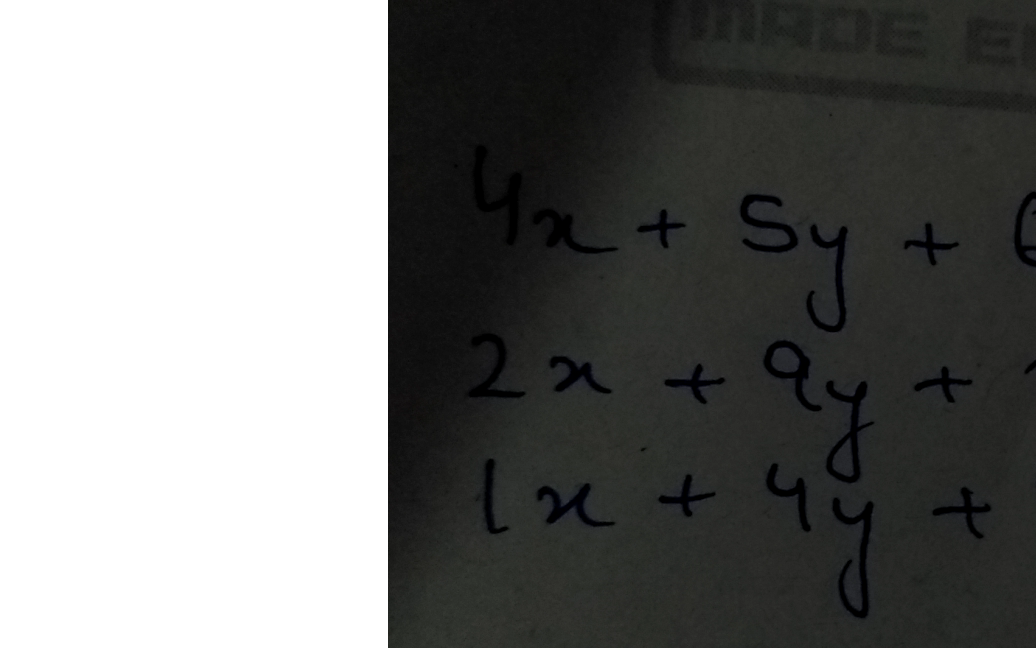 MADE
4x + 5y +
2x + 9y +
1x + 4y +